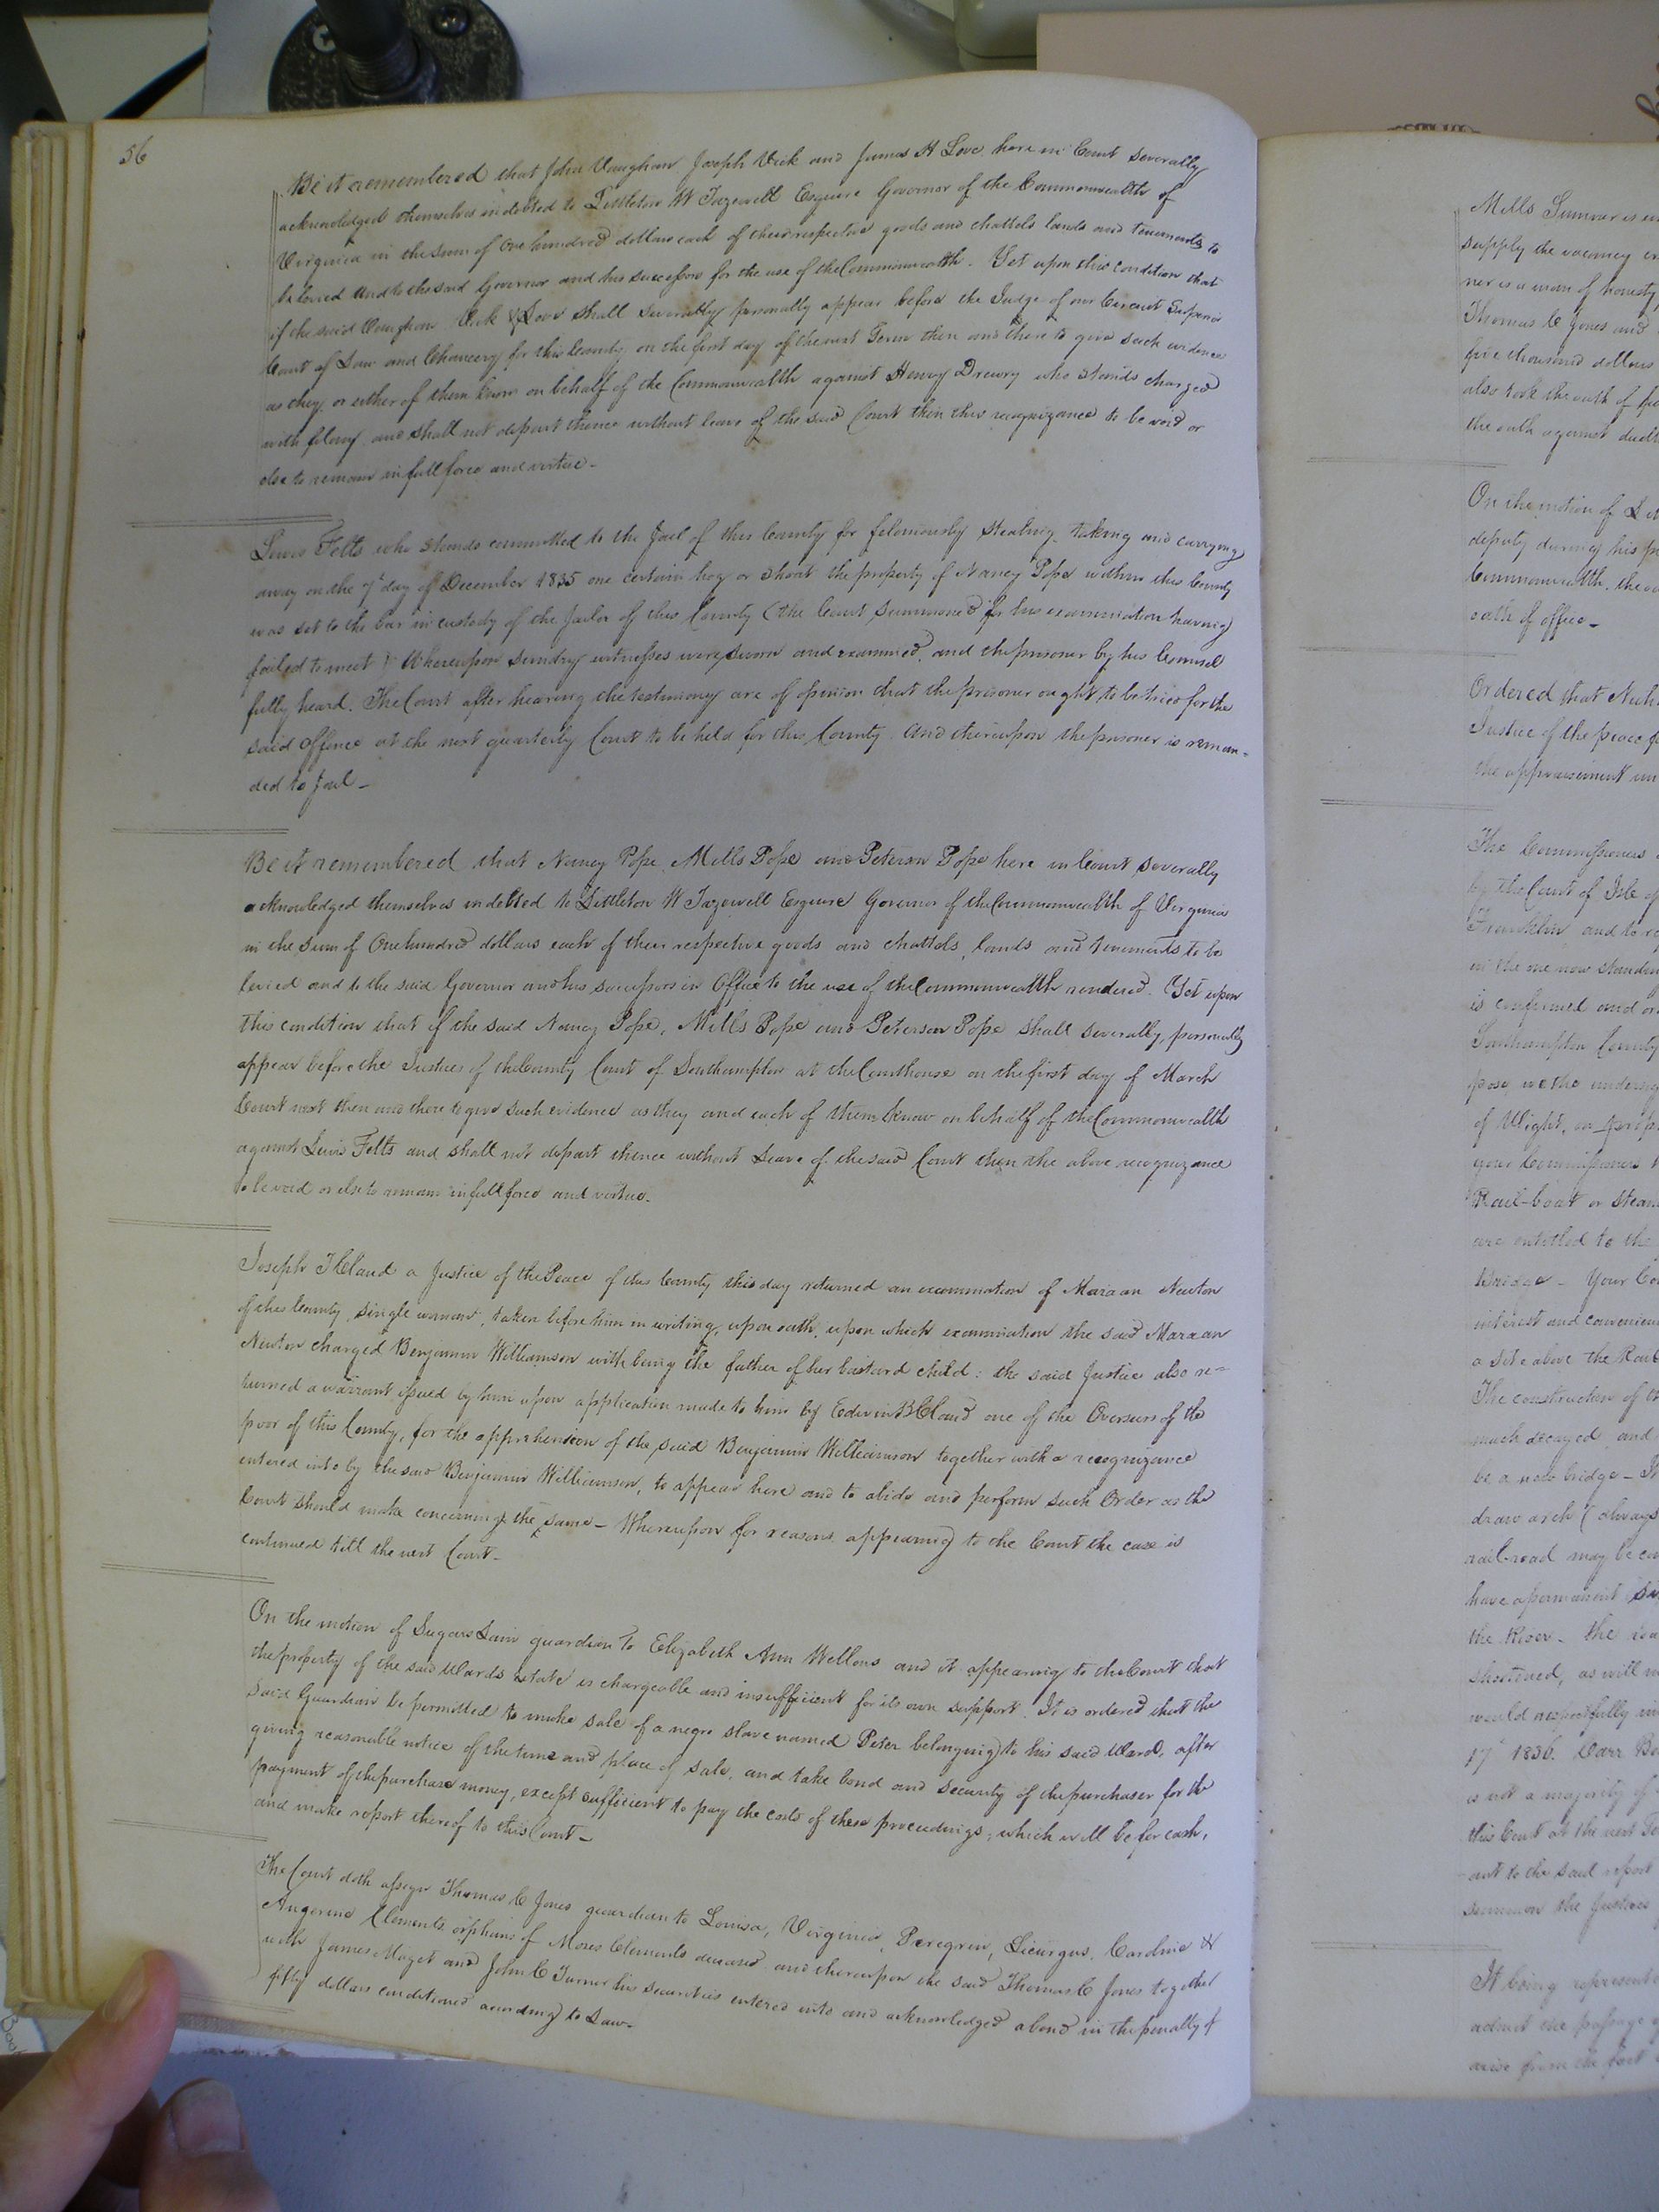 56
Be it remembered that John Vaughan Joseph Vick and James H Love here in Court severally
acknowledged themselves indebted to Littleton W Tazewell Esquire Governor of the Commonwealth of
Virginia in the sum of One hundred dollars each of their respective goods and chattels lands and tenements to
be levied and to the said Governor and his successors for the use of the Commonwealth. Yet upon this condition that
if the said Vaughan Vick & Love shall severally personally appear before the Judge of our Circuit Superior
Court of Law and Chancery for this County on the first day of the next Term then and there to give such evidence
as they or either of them know on behalf of the Commonwealth against Henry Drewry who stands charged
with felony and shall not depart thence without leave of the said Court then this recognizance to be void or
else to remain in full force and virtue-
Lewis Felts who stands committed to the Jail of this County for feloniously stealing taking and carrying
away on the 7th day of December 1835 one certain hog or shoat the property of Nancy Pope within this County
was set to the bar in custody of the Jailor of this County (the Court summoned for his examination having
failed to meet) Whereupon sundry witnesses were sworn and examined, and the prisoner by his Counsel
fully heard. The Court after hearing the testimony are of opinion that the prisoner ought to be tried for the
said offence at the next quarterly Court to be held for this County. and thereupon the prisoner is reman=
ded to Jail-
Be it remembered that Nancy Pope, Mills Pope and Peterson Pope here in Court severally
acknowledged themselves indebted to Littleton W Tazewell Esquire Governor of the Commonwealth of Virginia
in the sum of One hundred dollars each of their respective goods and chattels, lands and tenements to be
levied and to the said Governor and his successors in Office to the use of the Commonwealth rendered. Yet upon
this condition that if the said Nancy Pope, Mills Pope and Peterson Pope shall severally, personally
appear before the Justices of the County Court of Southampton at the Courthouse on the first day of March
Court next then and there to give such evidence as they and each of them know on behalf of the Commonwealth
against Lewis Felts and shall not depart thence without leave of the said Court then the above recognizance
to be void or else to remain in full force and virtue.
Joseph T Claud a Justice of the Peace of this County this day returned an examination of Maraan Newton
of this County, single woman, taken before him in writing, upon oath, upon which examination the said Maraan
Newton charged Benjamin Williamson with being the father of her bastard child: the said Justice also re=
turned a warrant issued by him upon application made to him by Edwin B Claud one of the Overseers of the
poor of this County, for the apprehension of the said Benjamin Williamson together with a recognizance
entered into by the said Benjamin Williamson, to appear here and to abide and perform such Order as the
Court should make concerning the same- Whereupon for reasons appearing to the Court the case is
continued till the next Court-
On the motion of Sugars Lain guardian to Elizabeth Ann Wellons and it appearing to the Court that
the property of the said Wards estate is chargeable and insufficient for its own support. It is ordered that the
said Guardian be permitted to make sale of a negro slave named Peter belonging to his said Ward, after
giving reasonable notice of the time and place of sale, and take bond and security of the purchaser for the
payment of the purchase money, except sufficient to pay the costs of these proceedings; which will be for cash,
and make report thereof to this Court-
The Court doth assign Thomas C Jones guardian to Louisa, Virginia, Peregrin, Licurgus, Caroline &
Angerine Clements orphans of Moses Clements deceased and thereupon the said Thomas C Jones together
with James Maget and John C Turner his securities entered into and acknowledged a bond in the penalty of
fifty dollars conditioned according to Law-
Mills Sumner is
supply the vacancy
ner is a man of honesty
Thomas C Jones and
five thousand dollars
also took the oath of
the oath against
On the motion of
deputy during his
Commonwealth, the
oath of office-
Ordered that
Justice of the peace
the appraisement
The Commissioners
by the Court of Isle of
Franklin and to
in the one now
is confirmed and
Southampton County
pose, we the
of Wight,
your Commissioners
Rail-boat or steam
are entitled to the
bridge - Your
interest and
a site above the Rail
The construction of
much decayed and
be a new bridge -
draw arch (always
railroad may be
have a permanent
the River. the
shortened, as will
would respectfully
17th 1836. Carr
is not a majority of
this Court at the next
ant to the said report
summon the Justices
It being
admit the passage
arise from the fact